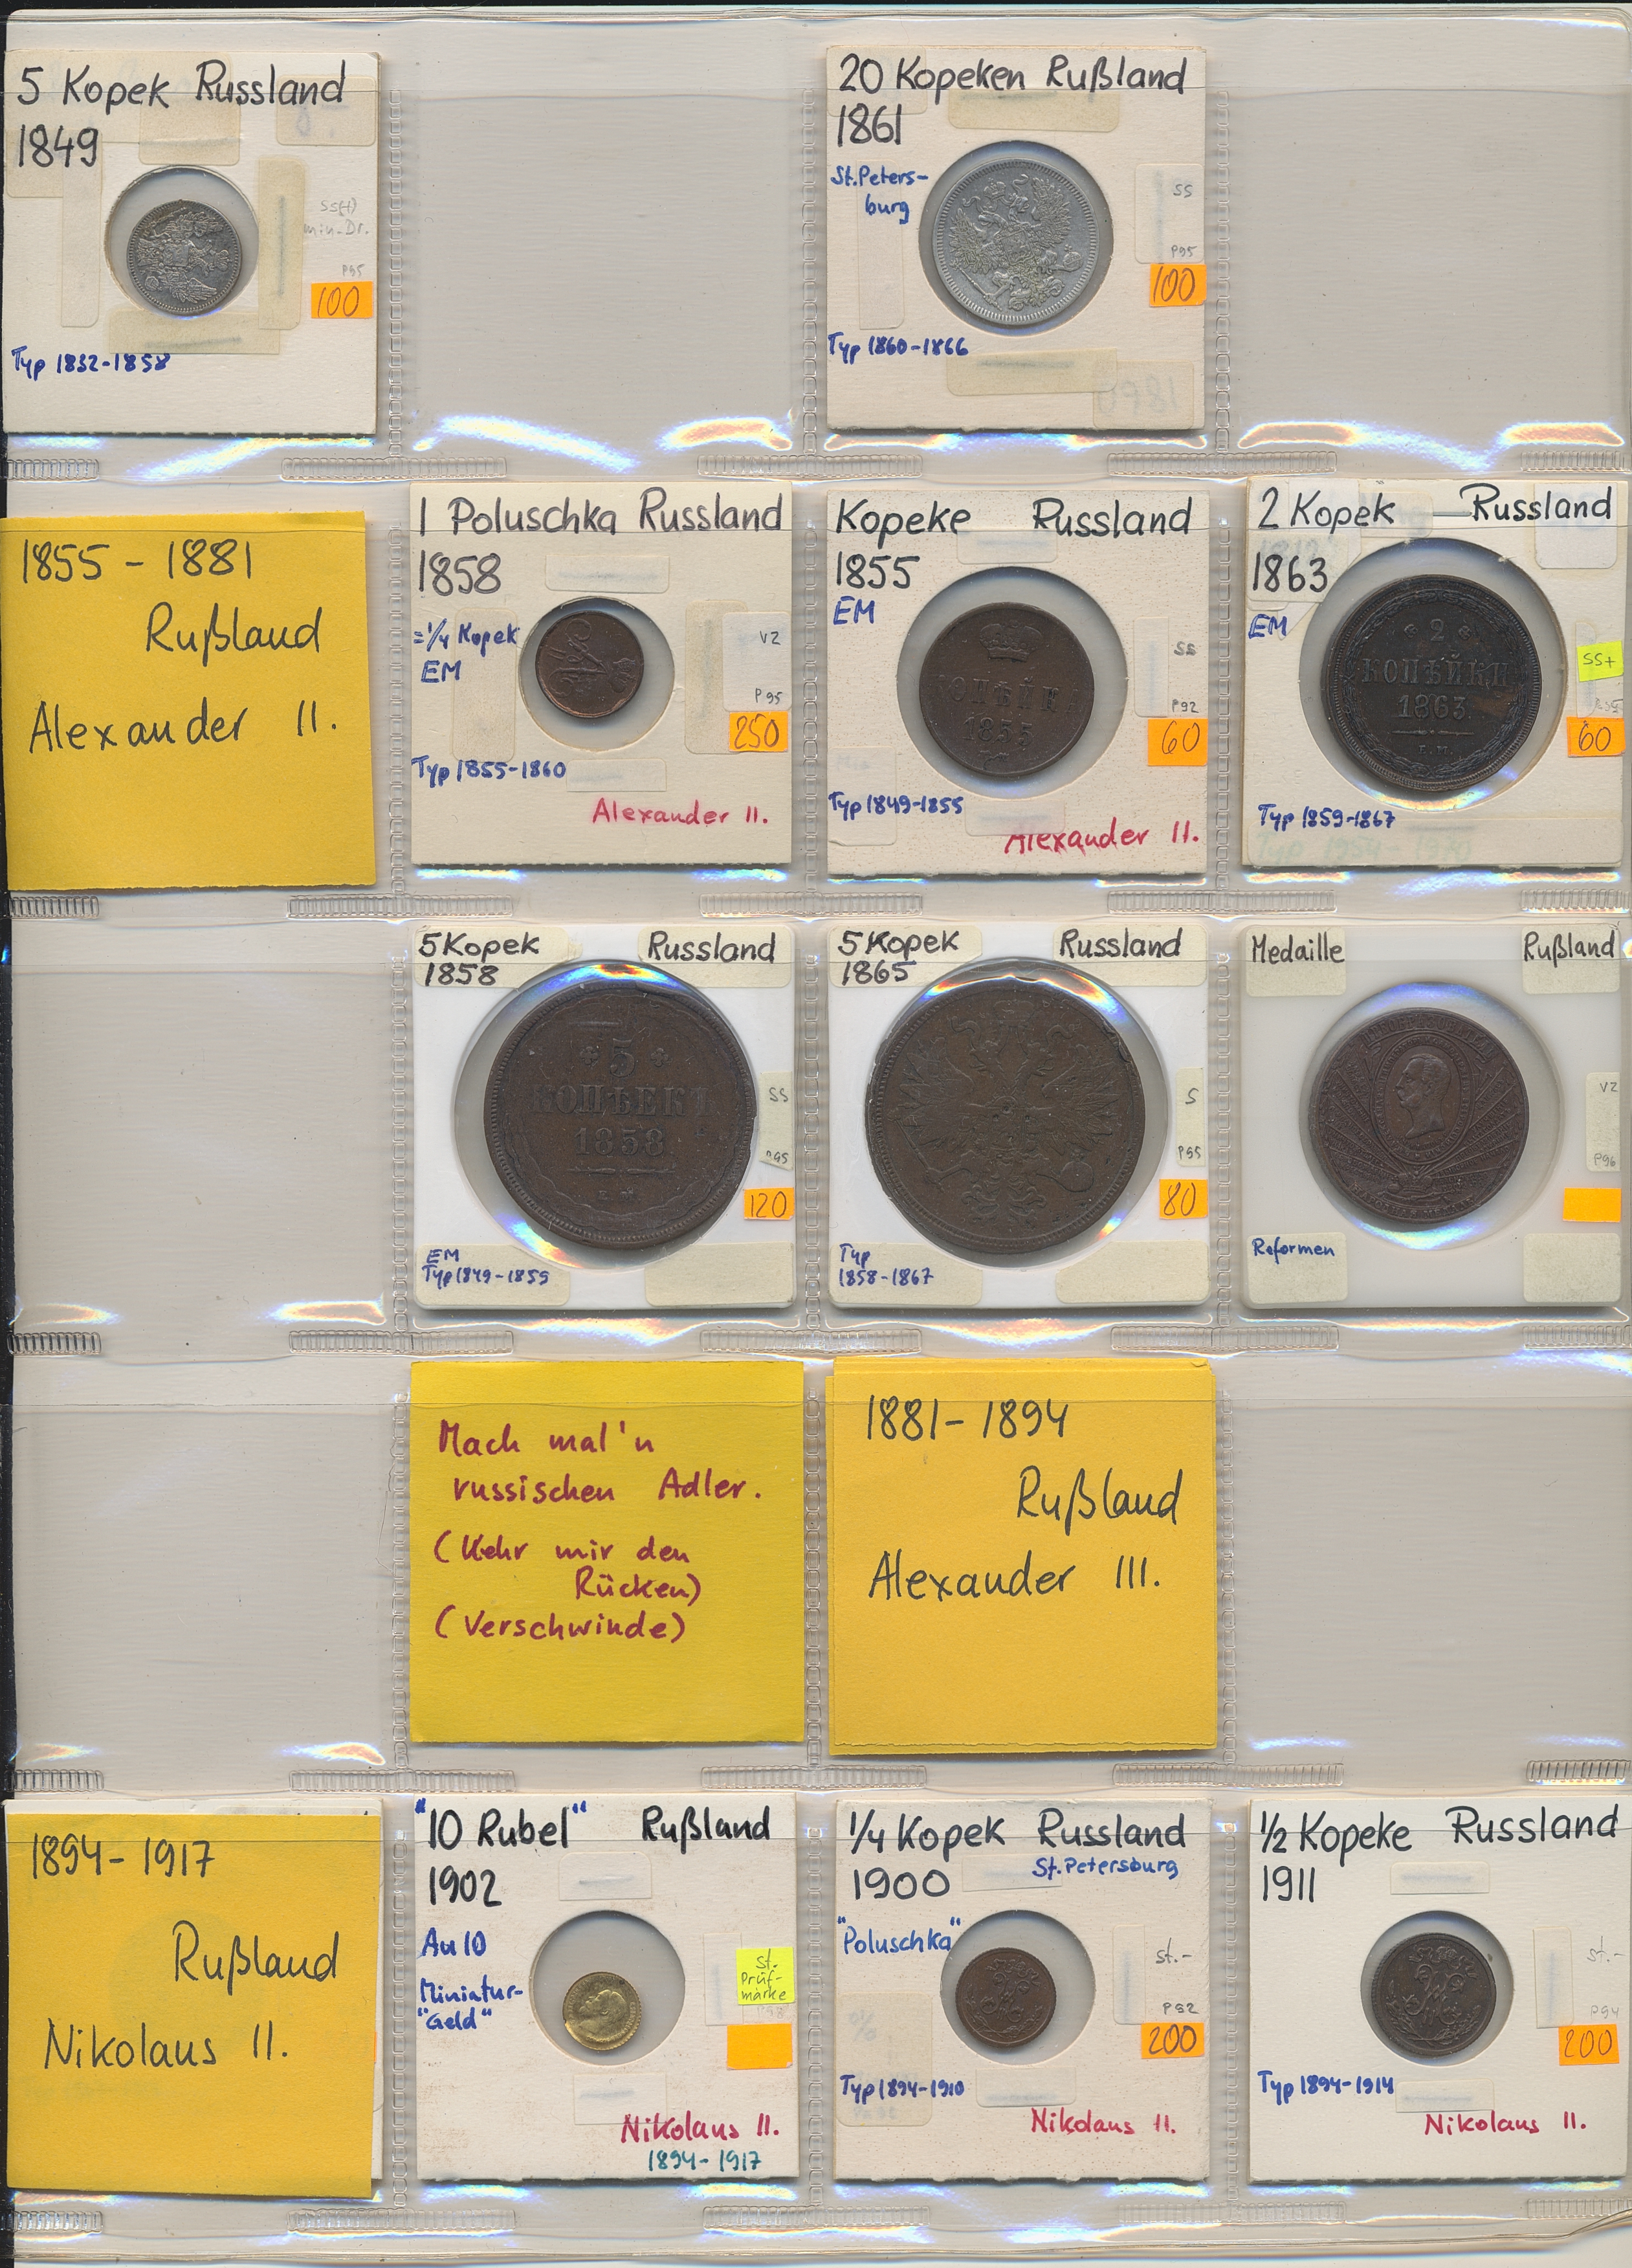 5 Kopek Russland
1849
SS(+)
min. Dr.
P95
100
Typ 1832-1858
20 Kopeken Rußland
1861
St. Peters-
burg
SS
P95
100
Typ 1860-1866
1855 - 1881
Rußland
Alexander II.
1 Poluschka Russland
1858
=1/4 Kopek
EM
VZ
P95
250
Typ 1855-1860
Alexander II.
Kopeke Russland
1855
EM
SS
P92
60
КОПѢЙКА
1855
Typ 1849-1855
Alexander II.
2 Kopek Russland
1863
EM
SS+
60
2
КОПѢЙКИ
1863
Е.М.
Typ 1859-1867
5 Kopek Russland
1858
5
КОПѢЕКЪ
1858
Е.М.
SS
P95
120
EM
Typ 1849-1859
5 Kopek Russland
1865
S
P95
80
Typ
1858-1867
Medaille Rußland
VZ
P96
Reformen
Mach mal'n
russischen Adler.
(Kehr mir den
Rücken)
(Verschwinde)
1881-1894
Rußland
Alexander III.
1894-1917
Rußland
Nikolaus II.
"10 Rubel" Rußland
1902
Au 10
Miniatur-
"Geld"
St.
Prüf-
marke
Nikolaus II.
1894-1917
1/4 Kopek Russland
St. Petersburg
1900
"Poluschka"
St.-
P92
200
Typ 1894-1910
Nikolaus II.
1/2 Kopeke Russland
1911
St.-
P94
200
Typ 1894-1914
Nikolaus II.